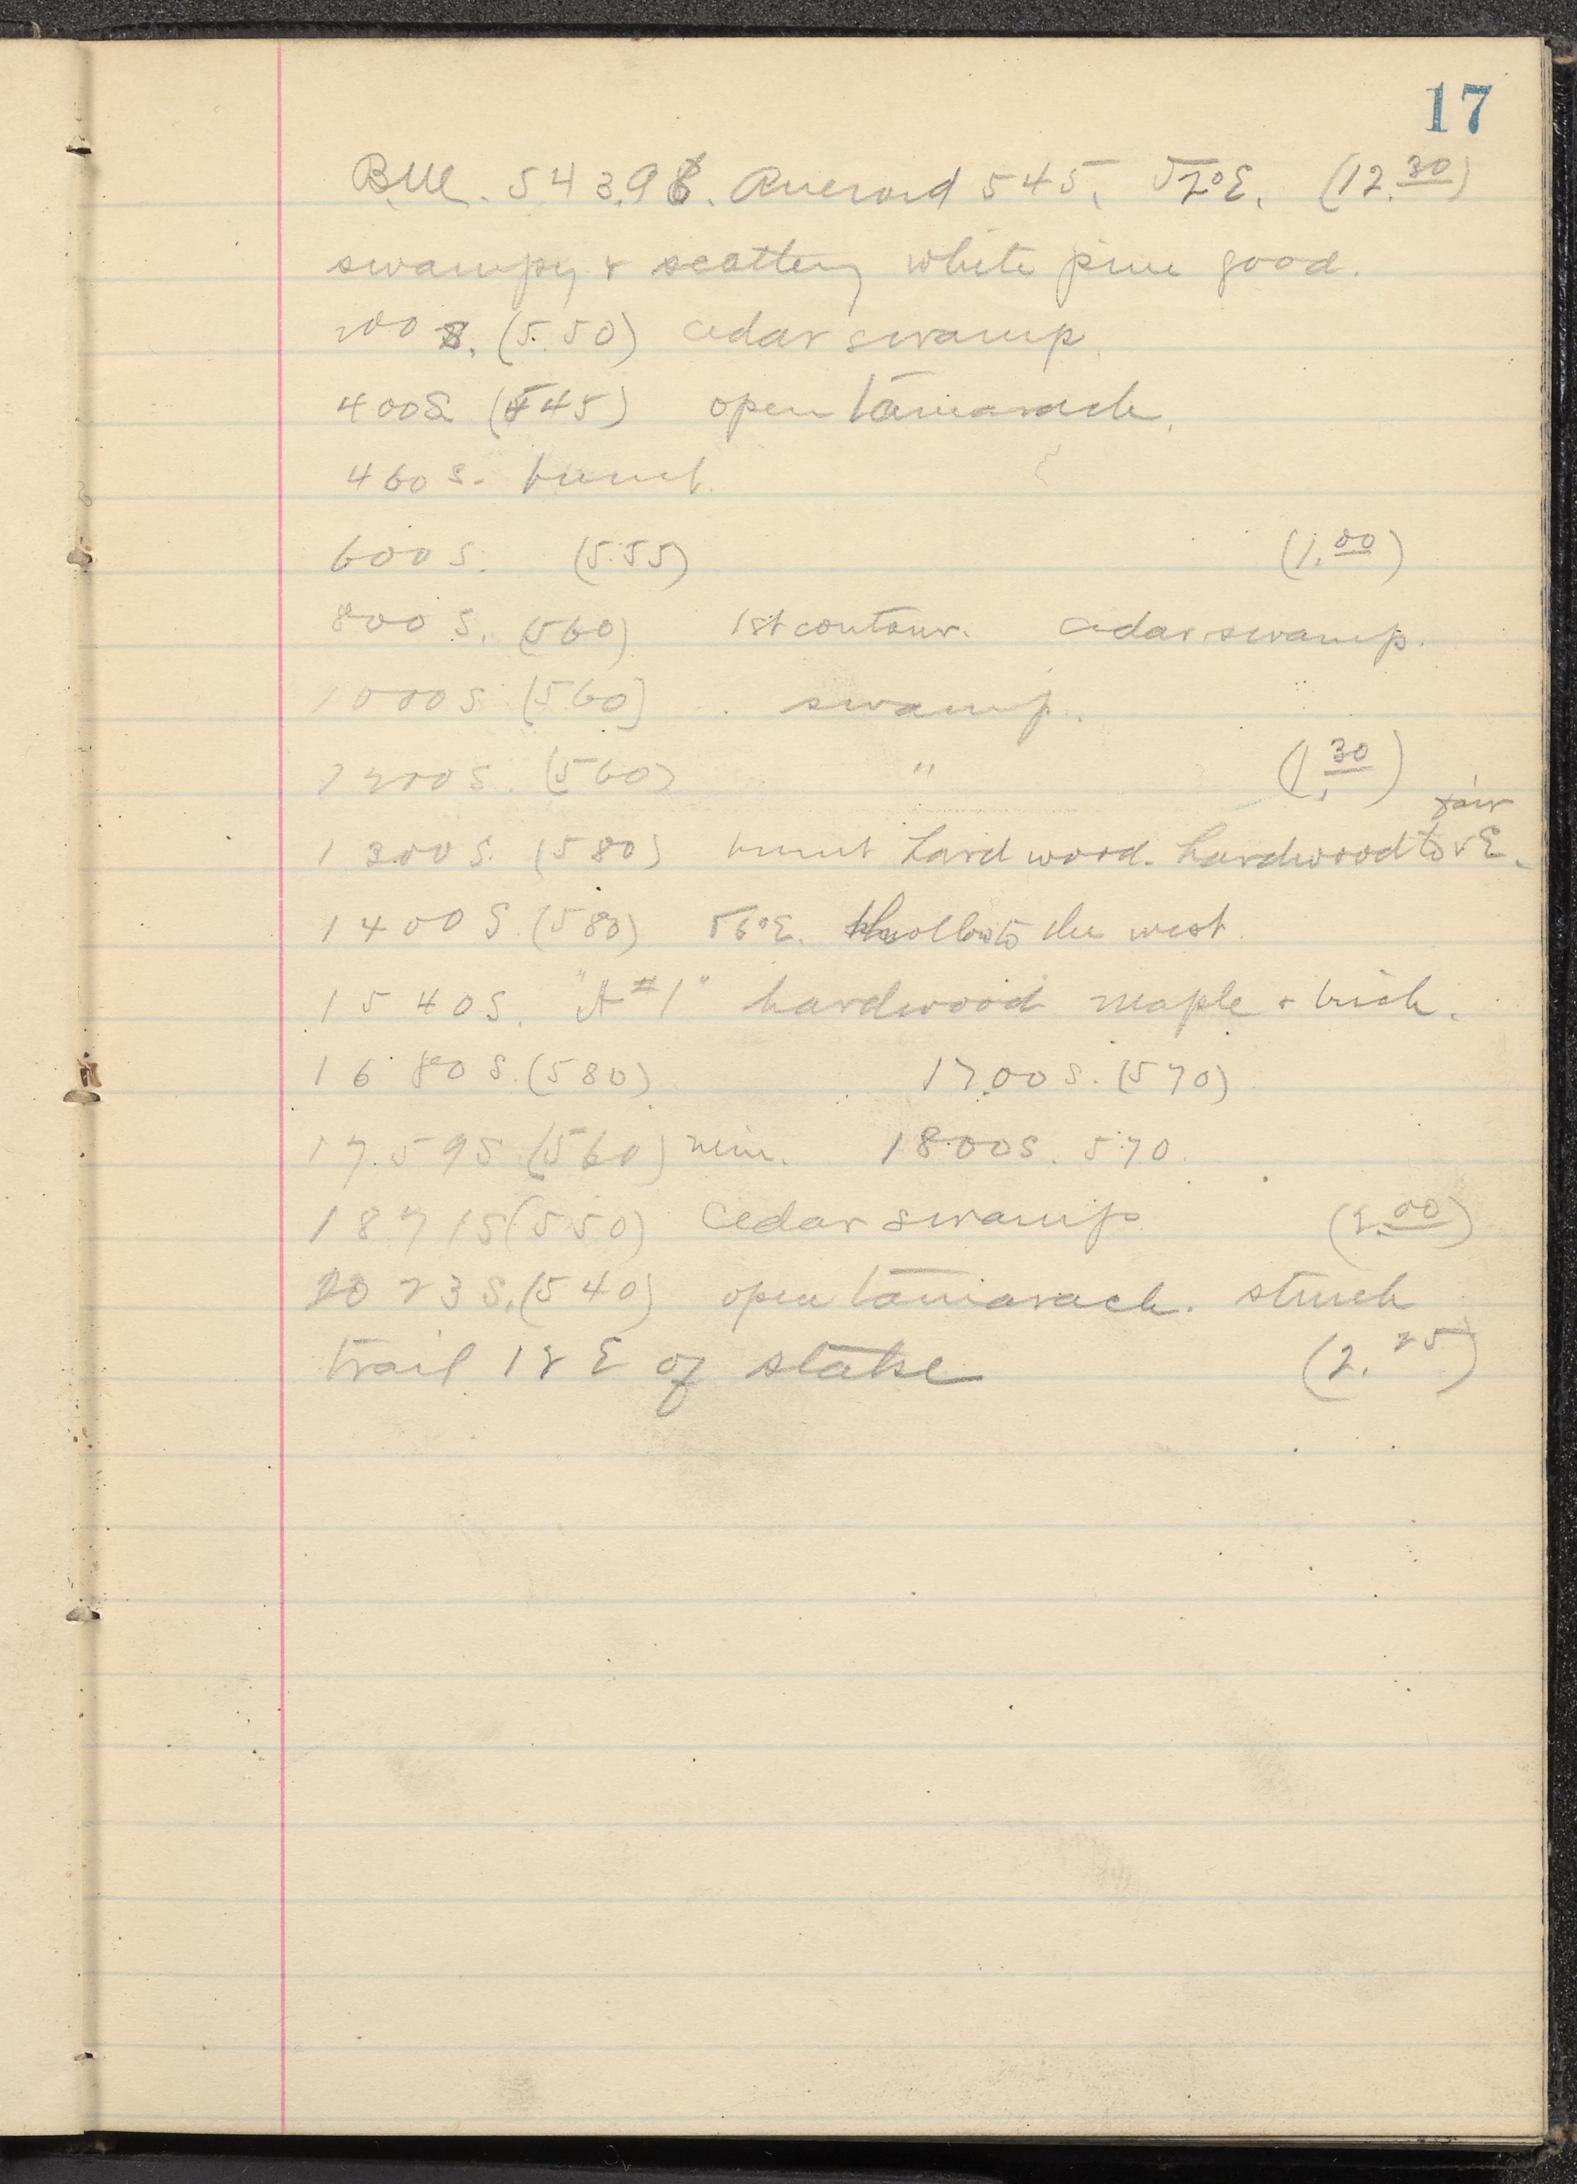 17
B.M. 543.98. Aneroid 545. 52°E. (12.30)
swampy & scattery white pine good.
200 S. (550) cedar swamp.
400 S. (545) open tamarack.
460 S. burnt.
600 S. (555) (1.00)
800 S. (560) 1st contour. cedar swamp.
1000 S. (560) swamp.
1200 S. (560) " (1.30)
fair
1300 S. (580) burnt hard wood. hardwood to E.
1400 S. (580) 56°E. to the west.
1540 S. "A #1" hardwood maple & birch.
1680 S. (580) 1700 S. (570)
1759 S. (560) min. 1800 S. 570.
1871 S (550) cedar swamp (2.00)
2023 S. (540) open tamarack. struck
trail 12 E of stake (2.25)